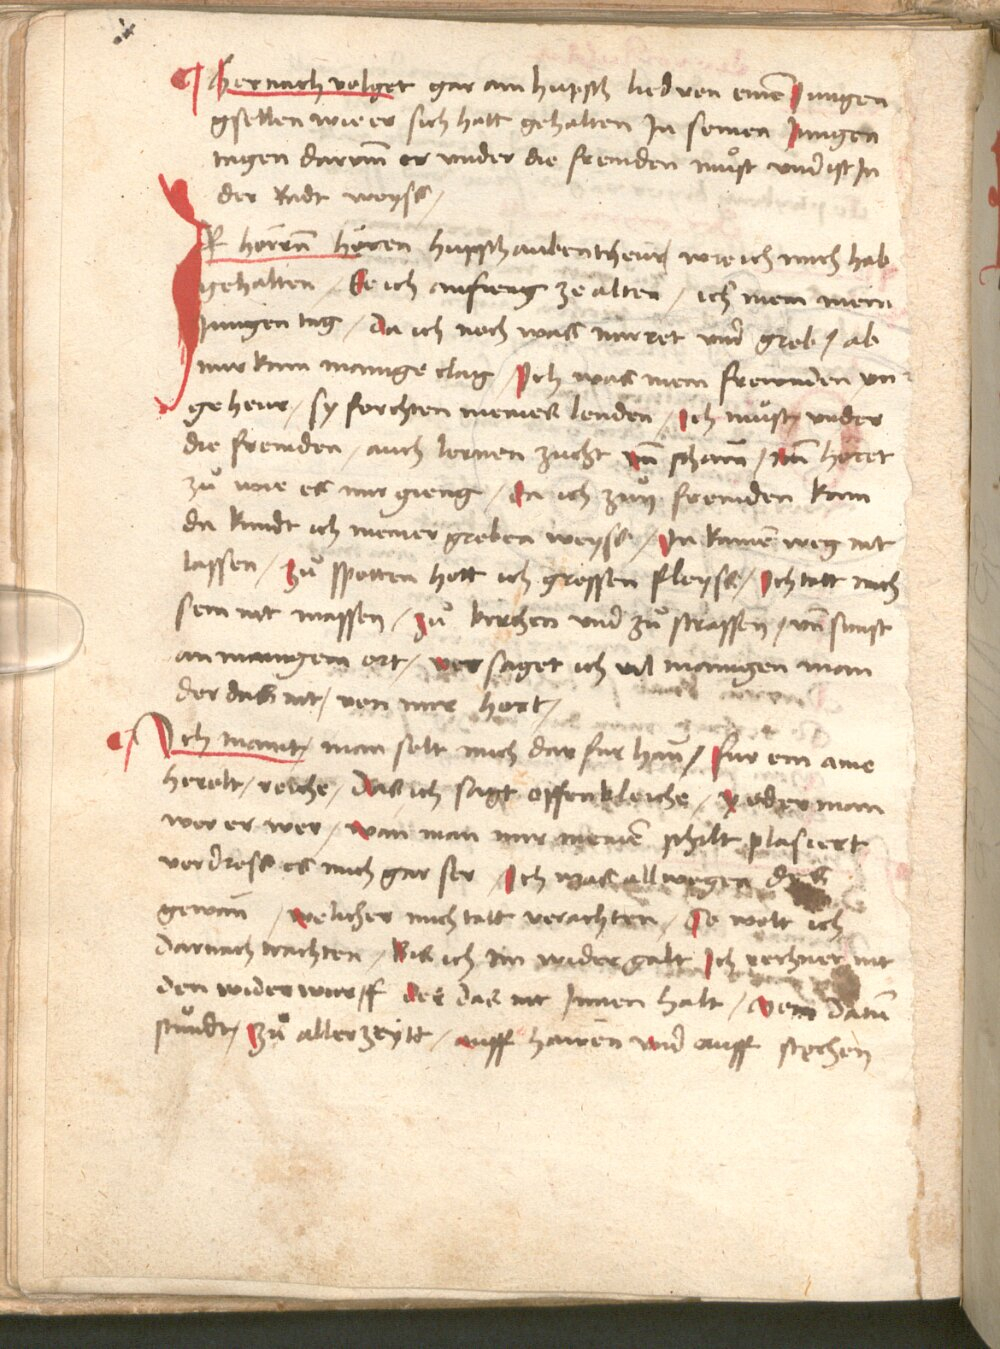 Hernach volget gar ain hupsch lied von eine͂ Jungen
gsellen wie er sich hatt gehalten Jn seinen Jungen
tagen daru͂m er vnder die fremden muͦst vnd ist Jn
der Radt weyss /
Jr herre͂n horen hupsch aubentheur / wie ich mich hab
gehalten / Ee ich anfieng ze alten / ich mein mein
Jungen tag / da ich noch was narret vnd grob / ab
mir kam mange clag / Jch was mein frewnden vn
geheur / sy forchten meines lenden / Jch muͦst vnder
die fremden / auch lernen zucht vn͂ scham͂ / nu͂n horet
zuͦ wie es mir gieng / da ich zun fremden kam
da kundt ich meiner groben weyss / Jn kaine͂ weg nit
lassen / zuͦ spotten hett ich grossen fleyss / Jch tatt mich
sein nit massen / zuͦ kirchen vnd zuͦ strassen / vn͂ sunst
an mangem ort / ver saget ich vil mangen man
der das nit / von mir hort /
Jch maint / man solt mich dar fur han͂ / fur ein aine
herolt / reiche / das ich sagt offenkleiche / yederman
wer er wer / wan man mir meine͂ schilt plasiert
verdross es mich gar ser / Jch was allwegen des
gewan͂ / welicher mich tatt verachten / So wolt ich
darnach trachten / Bis ich im widergalt Jch rechnet nit
den widerwurff der das nit Jnnen halt / dem datu͂
stuͦndt / zuͦ aller zeytt / auff hawen vnd auff stechen